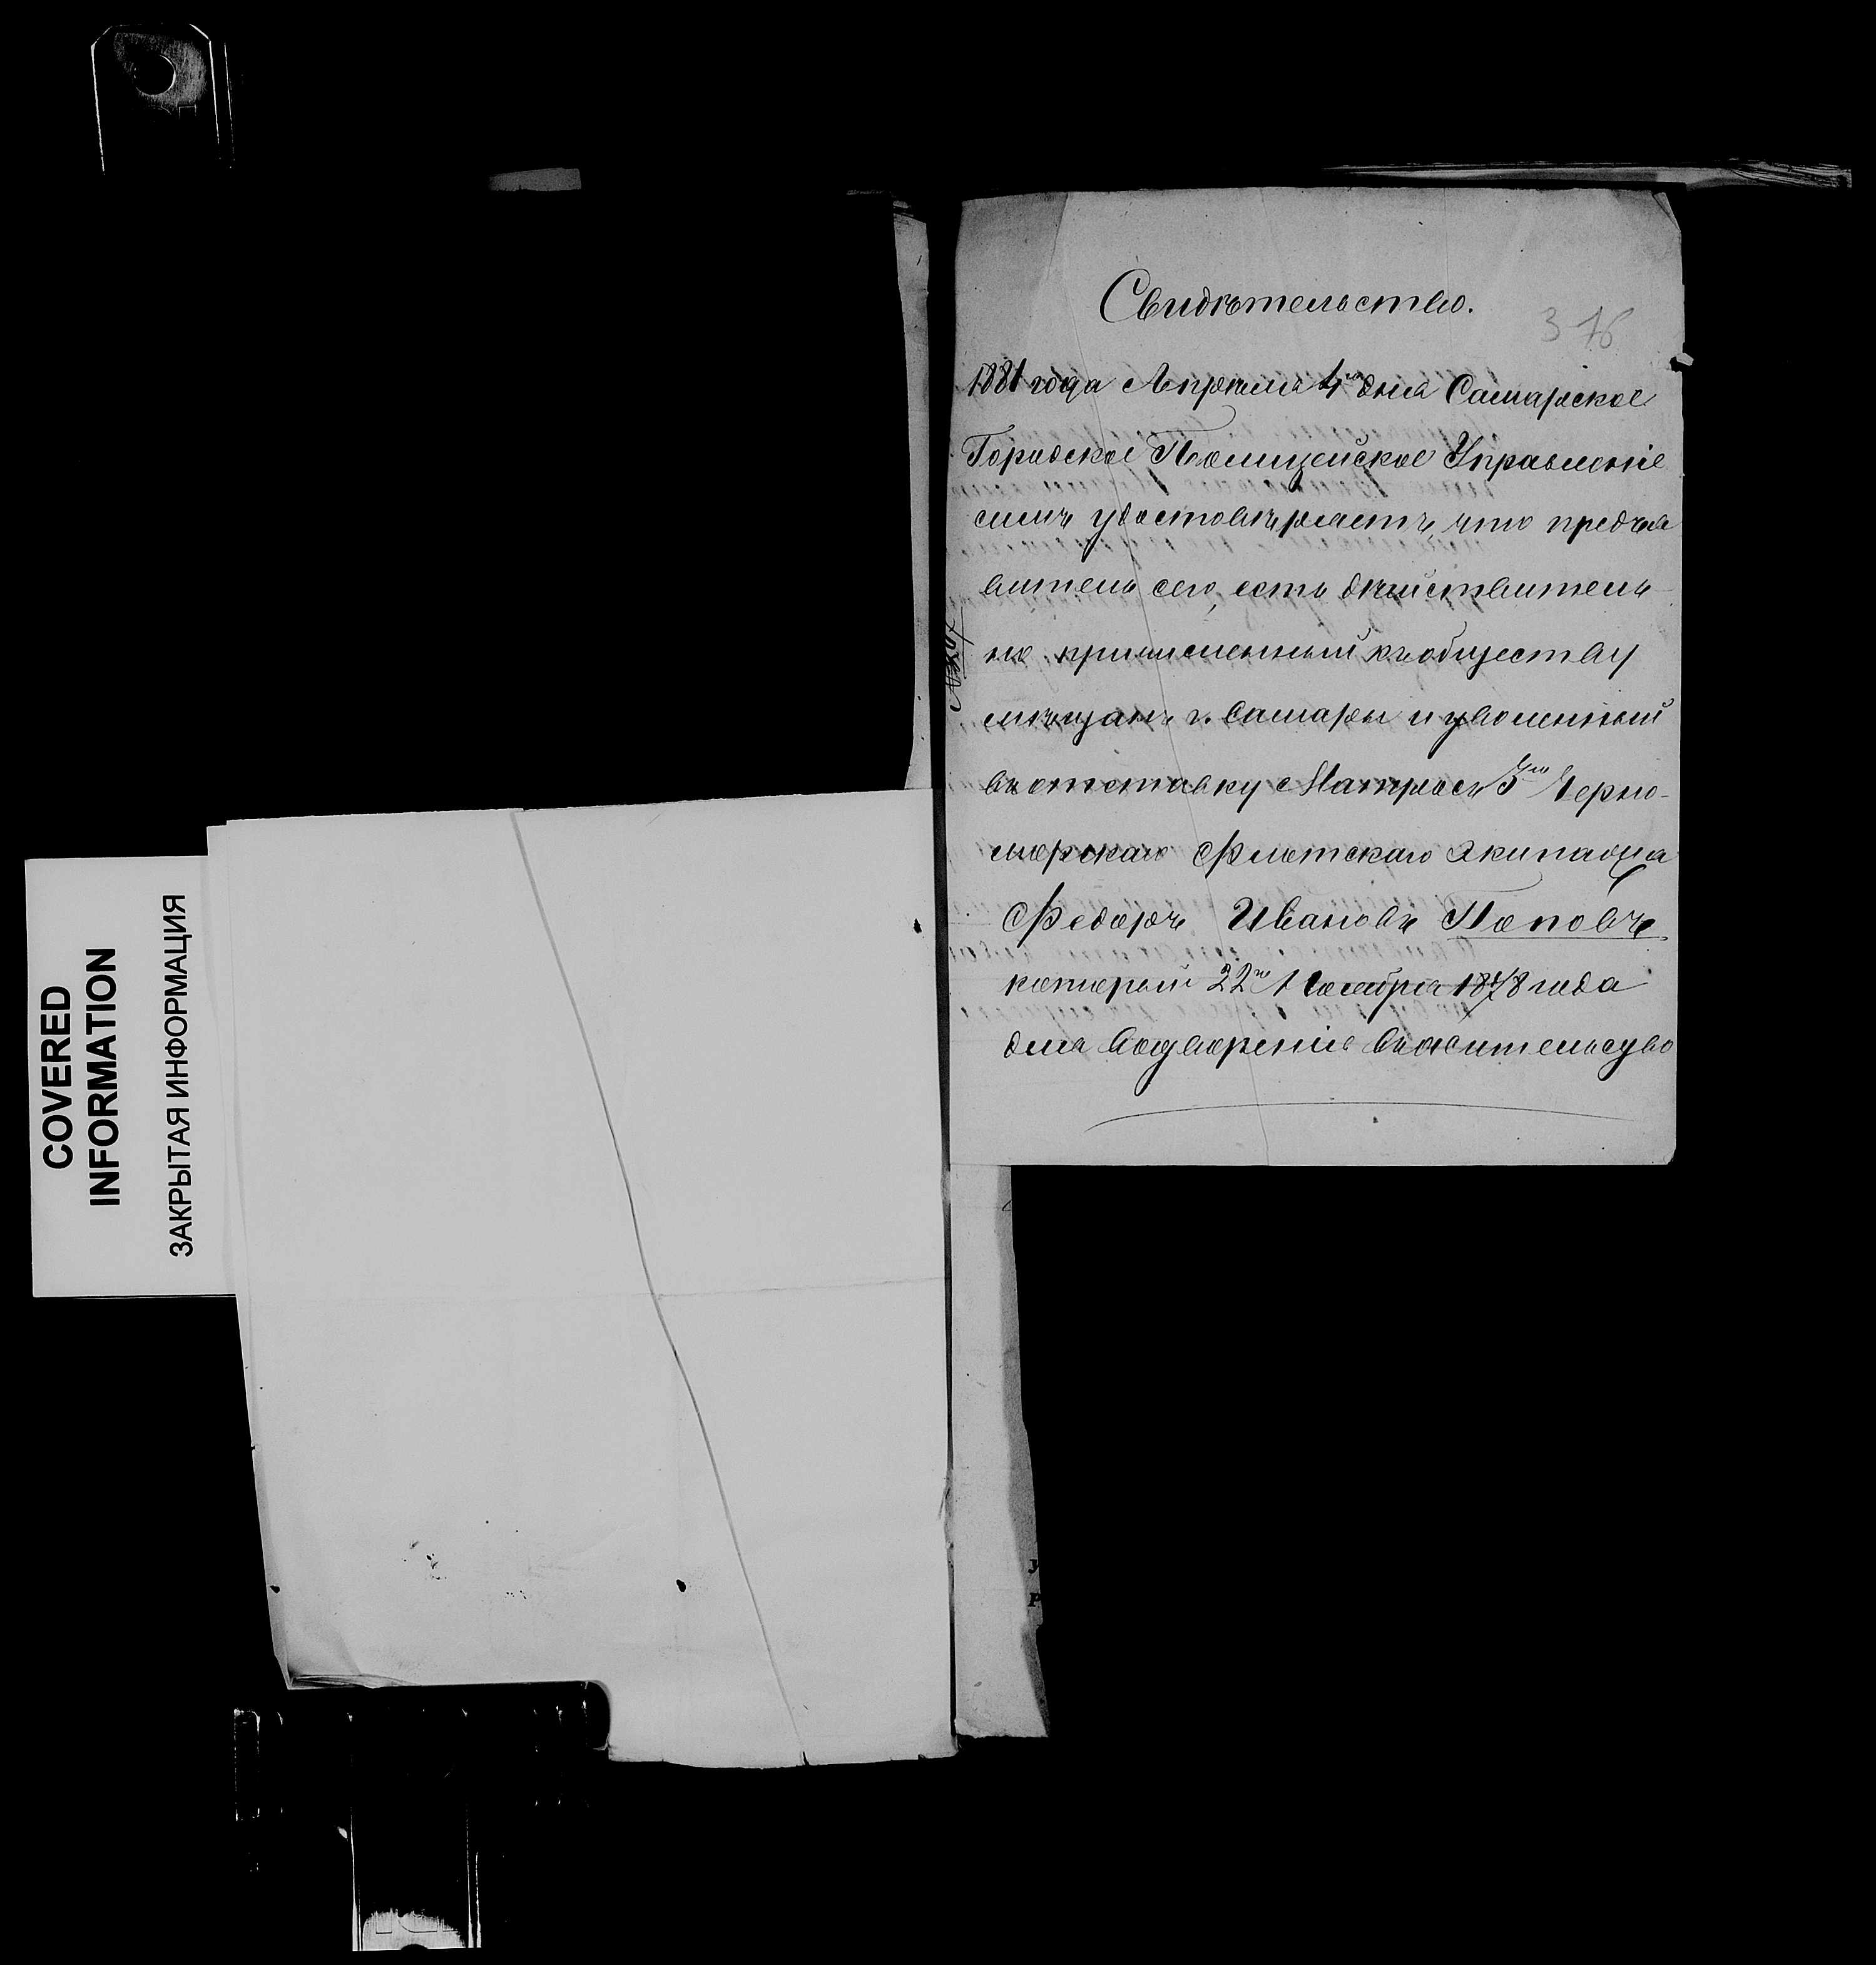 Свидѣтельство.
376
1881 года Апрѣля 4го дня Самарское
Городское Полицейское Управленіе
симъ удостовѣряетъ, что предъя
витель сего, есть дѣйствитель-
но причисленный къ обществу
мѣщанъ г. Самары и уволенный
въ отставку Матросъ 3го Черно-
морскаго Флотскаго Экипажа
Федоръ Ивановъ Поповъ
который 22го Ноября 1878 года
для водворенія въ жительство
COVERED
INFORMATION
ЗАКРЫТАЯ ИНФОРМАЦИЯ